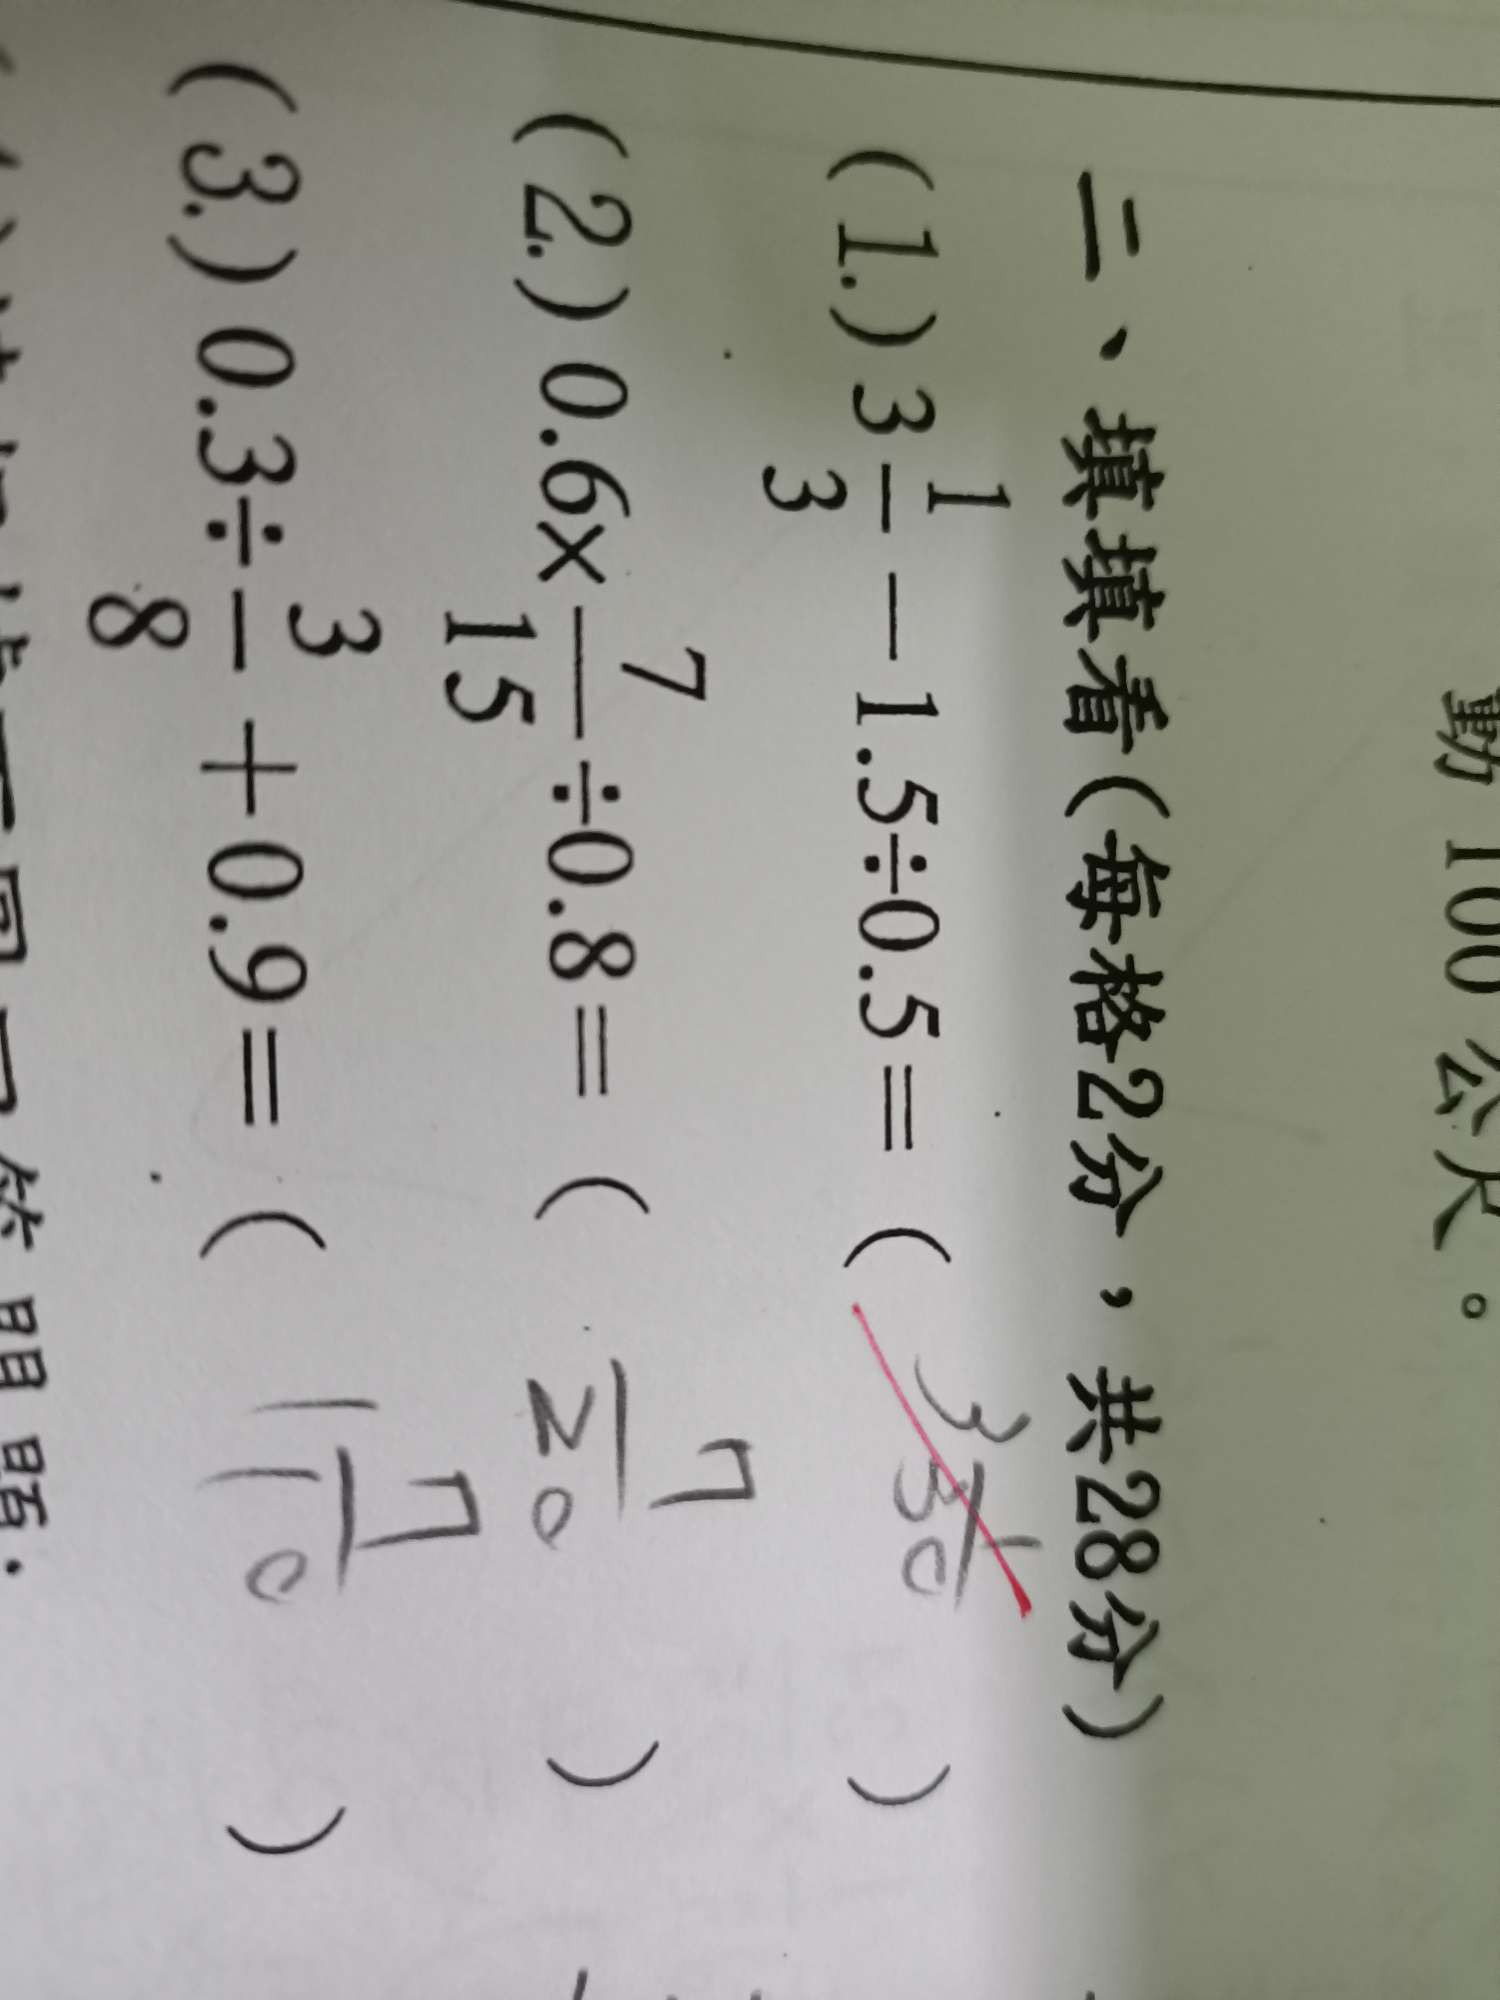 勤 100 公尺。
二、填填看(每格2分,共28分)
(1.) 3 1/3 － 1.5÷0.5＝( 3 1/30 )
(2.) 0.6× 7/15 ÷0.8＝( 7/20 )
(3.) 0.3÷ 3/8 ＋0.9＝( 1 7/10 )